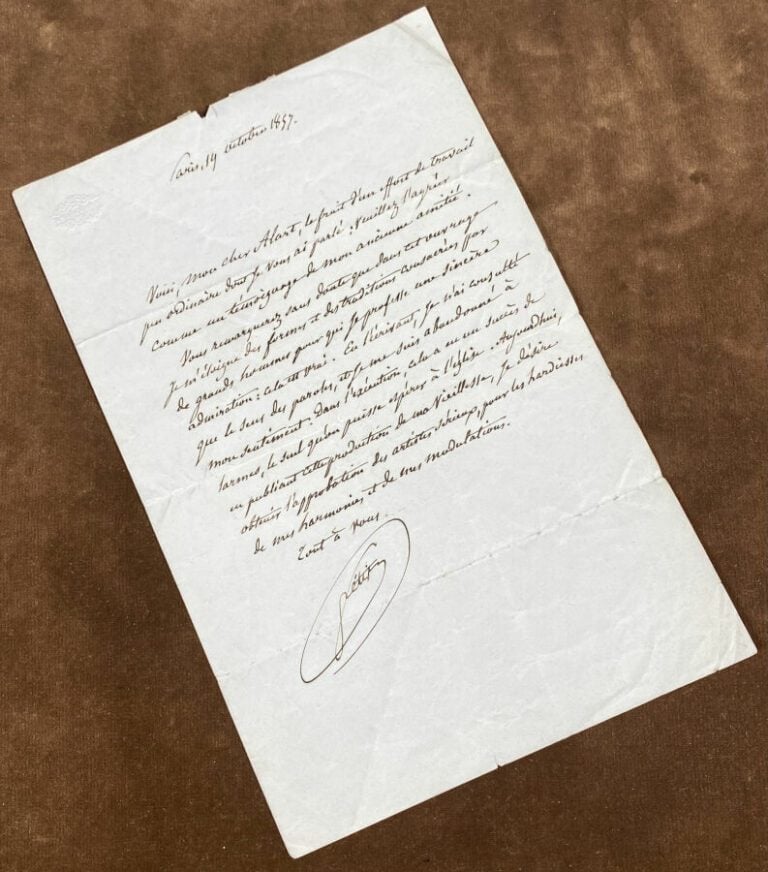 Paris, 19 octobre 1857.
Voici, mon cher Alart, le fruit d'un effort de travail
peu ordinaire dont je vous ai parlé : Veuillez l'agréer
comme un témoignage de mon ancienne amitié.
Vous remarquerez sans doute que dans cet ouvrage
je m'éloigne des formes et des traditions consacrées par
de grands hommes pour qui je professe une sincère
admiration : cela est vrai. En l'écrivant, je n'ai consulté
que le sens des paroles, et je me suis abandonné à
mon sentiment. Dans l'exécution, cela a eu un succès de
larmes, le seul qu'on puisse espérer à l'église. Aujourd'hui,
en publiant cette production de ma vieillesse, je désire
obtenir l'approbation des artistes sérieux, pour les hardiesses
de mes harmonies et de mes modulations.
Tout à vous.
fétis